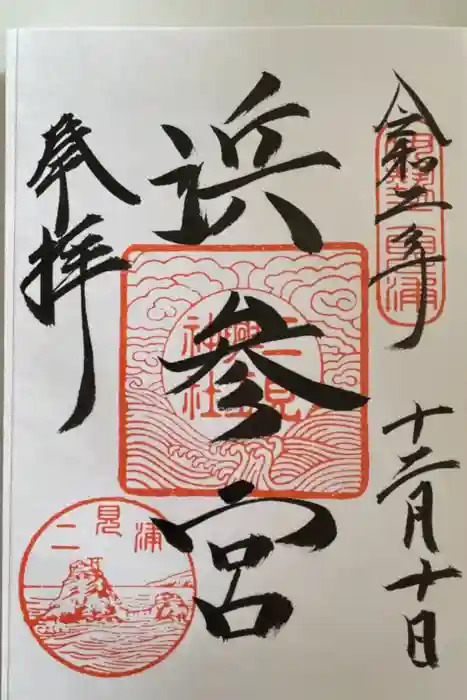 令和二年
十二月十日
浜参宮
二見
興玉
神社
奉拝
二見浦